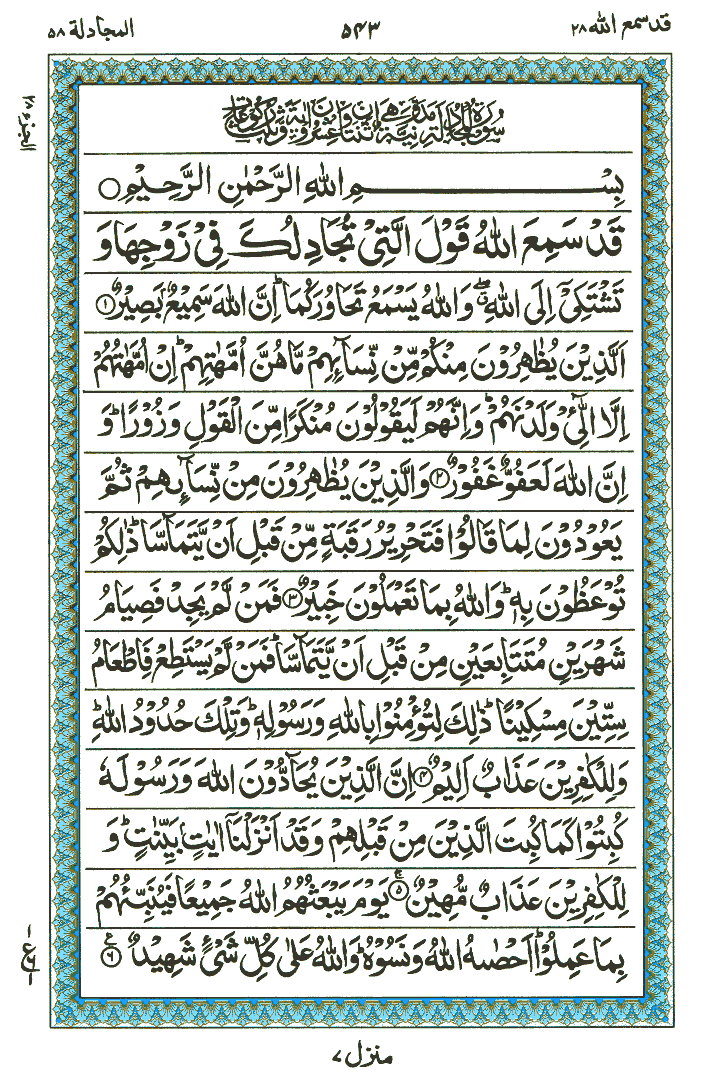 قدسمع الله ٢٨
٥٤٣
المجادلة ٥٨
سُوْرَةُ الْمُجَادَلَةِ مَدَنِيَّةٌ وَّهِيَ اثْنَتَانِ وَّعِشْرُوْنَ اٰيَةً وَّثَلٰثُ رُكُوْعَاتٍ
بِسْــــــمِ اللهِ الرَّحْمٰنِ الرَّحِيْمِ ○
قَدْ سَمِعَ اللهُ قَوْلَ الَّتِیْ تُجَادِلُكَ فِیْ زَوْجِهَا وَ
تَشْتَكِیْۤ اِلَی اللهِ ۖۗ وَاللهُ يَسْمَعُ تَحَاوُرَكُمَا ؕ اِنَّ اللهَ سَمِيْعٌۢ بَصِيْرٌ ①
اَلَّذِيْنَ يُظٰهِرُوْنَ مِنْكُمْ مِّنْ نِّسَآئِهِمْ مَّا هُنَّ اُمَّهٰتِهِمْ ؕ اِنْ اُمَّهٰتُهُمْ
اِلَّا الّٰٓیِٔ وَلَدْنَهُمْ ؕ وَاِنَّهُمْ لَيَقُوْلُوْنَ مُنْكَرًا مِّنَ الْقَوْلِ وَزُوْرًا ؕ وَ
اِنَّ اللهَ لَعَفُوٌّ غَفُوْرٌ ② وَالَّذِيْنَ يُظٰهِرُوْنَ مِنْ نِّسَآئِهِمْ ثُمَّ
يَعُوْدُوْنَ لِمَا قَالُوْا فَتَحْرِيْرُ رَقَبَةٍ مِّنْ قَبْلِ اَنْ يَّتَمَآسَّا ؕ ذٰلِكُمْ
تُوْعَظُوْنَ بِهٖ ؕ وَاللهُ بِمَا تَعْمَلُوْنَ خَبِيْرٌ ③ فَمَنْ لَّمْ يَجِدْ فَصِيَامُ
شَهْرَيْنِ مُتَتَابِعَيْنِ مِنْ قَبْلِ اَنْ يَّتَمَآسَّا ۚ فَمَنْ لَّمْ يَسْتَطِعْ فَاِطْعَامُ
سِتِّيْنَ مِسْكِيْنًا ؕ ذٰلِكَ لِتُؤْمِنُوْا بِاللهِ وَرَسُوْلِهٖ ؕ وَتِلْكَ حُدُوْدُ اللهِ ؕ
وَلِلْكٰفِرِيْنَ عَذَابٌ اَلِيْمٌ ④ اِنَّ الَّذِيْنَ يُحَآدُّوْنَ اللهَ وَرَسُوْلَهٗ
كُبِتُوْا كَمَا كُبِتَ الَّذِيْنَ مِنْ قَبْلِهِمْ وَقَدْ اَنْزَلْنَاۤ اٰيٰتٍۭ بَيِّنٰتٍ ؕ وَ
لِلْكٰفِرِيْنَ عَذَابٌ مُّهِيْنٌ ۚ ⑤ يَوْمَ يَبْعَثُهُمُ اللهُ جَمِيْعًا فَيُنَبِّئُهُمْ
بِمَا عَمِلُوْا ؕ اَحْصٰىهُ اللهُ وَنَسُوْهُ ؕ وَاللهُ عَلٰی كُلِّ شَیْءٍ شَهِيْدٌ ⑥ ع
الجزء ٢٨
منزل ٧